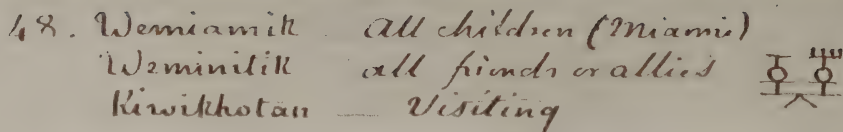 48. Wemiamik all children (Miamis)
Weminitik all friends or allies
Kiwikhotan — Visiting